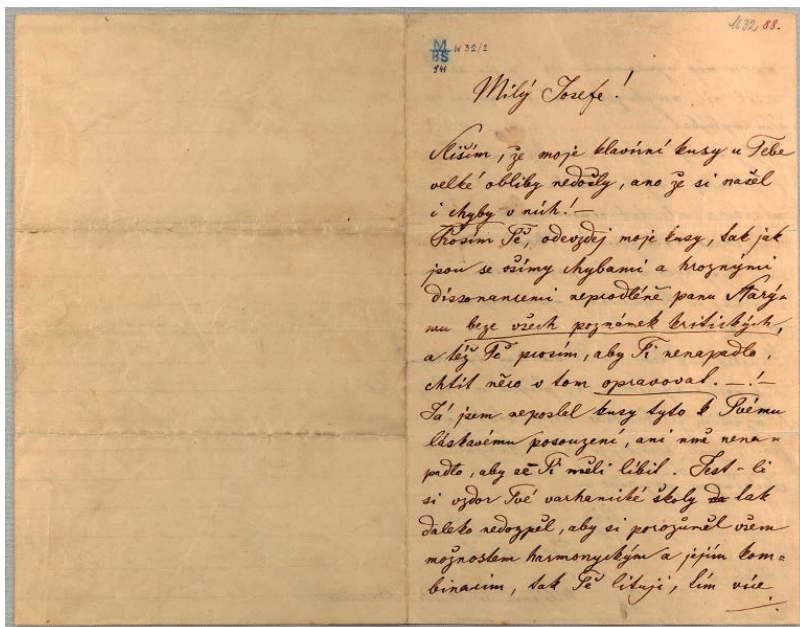 1632 88.
M
BS
W 32/2
941
Milý Josefe!
Sliším, že moje klavírní kusy u Tebe
velké obliby nedošly, ano že si našel
i chyby v nich! —
Prosím Tě, odevzdej moje kusy, tak jak
jsou se všímy chybami a hroznými
dissonancemi neprodléně panu Starý=
mu beze všech poznámek kritických,
a též Tě prosím, aby Ti nenapadlo,
chtít něco v tom opravovat. —!—
Já jsem neposlel kusy tyto k Tvému
láskavému posouzení, ani mně nena=
padlo, aby se Ti měli líbit. Jest-li
si vzdor Tvé varhanické školy tak
daleko nedospěl, aby si porozuměl všem
možnostem harmonyckým a jejím kom=
binacím, tak Tě lituji, tím více